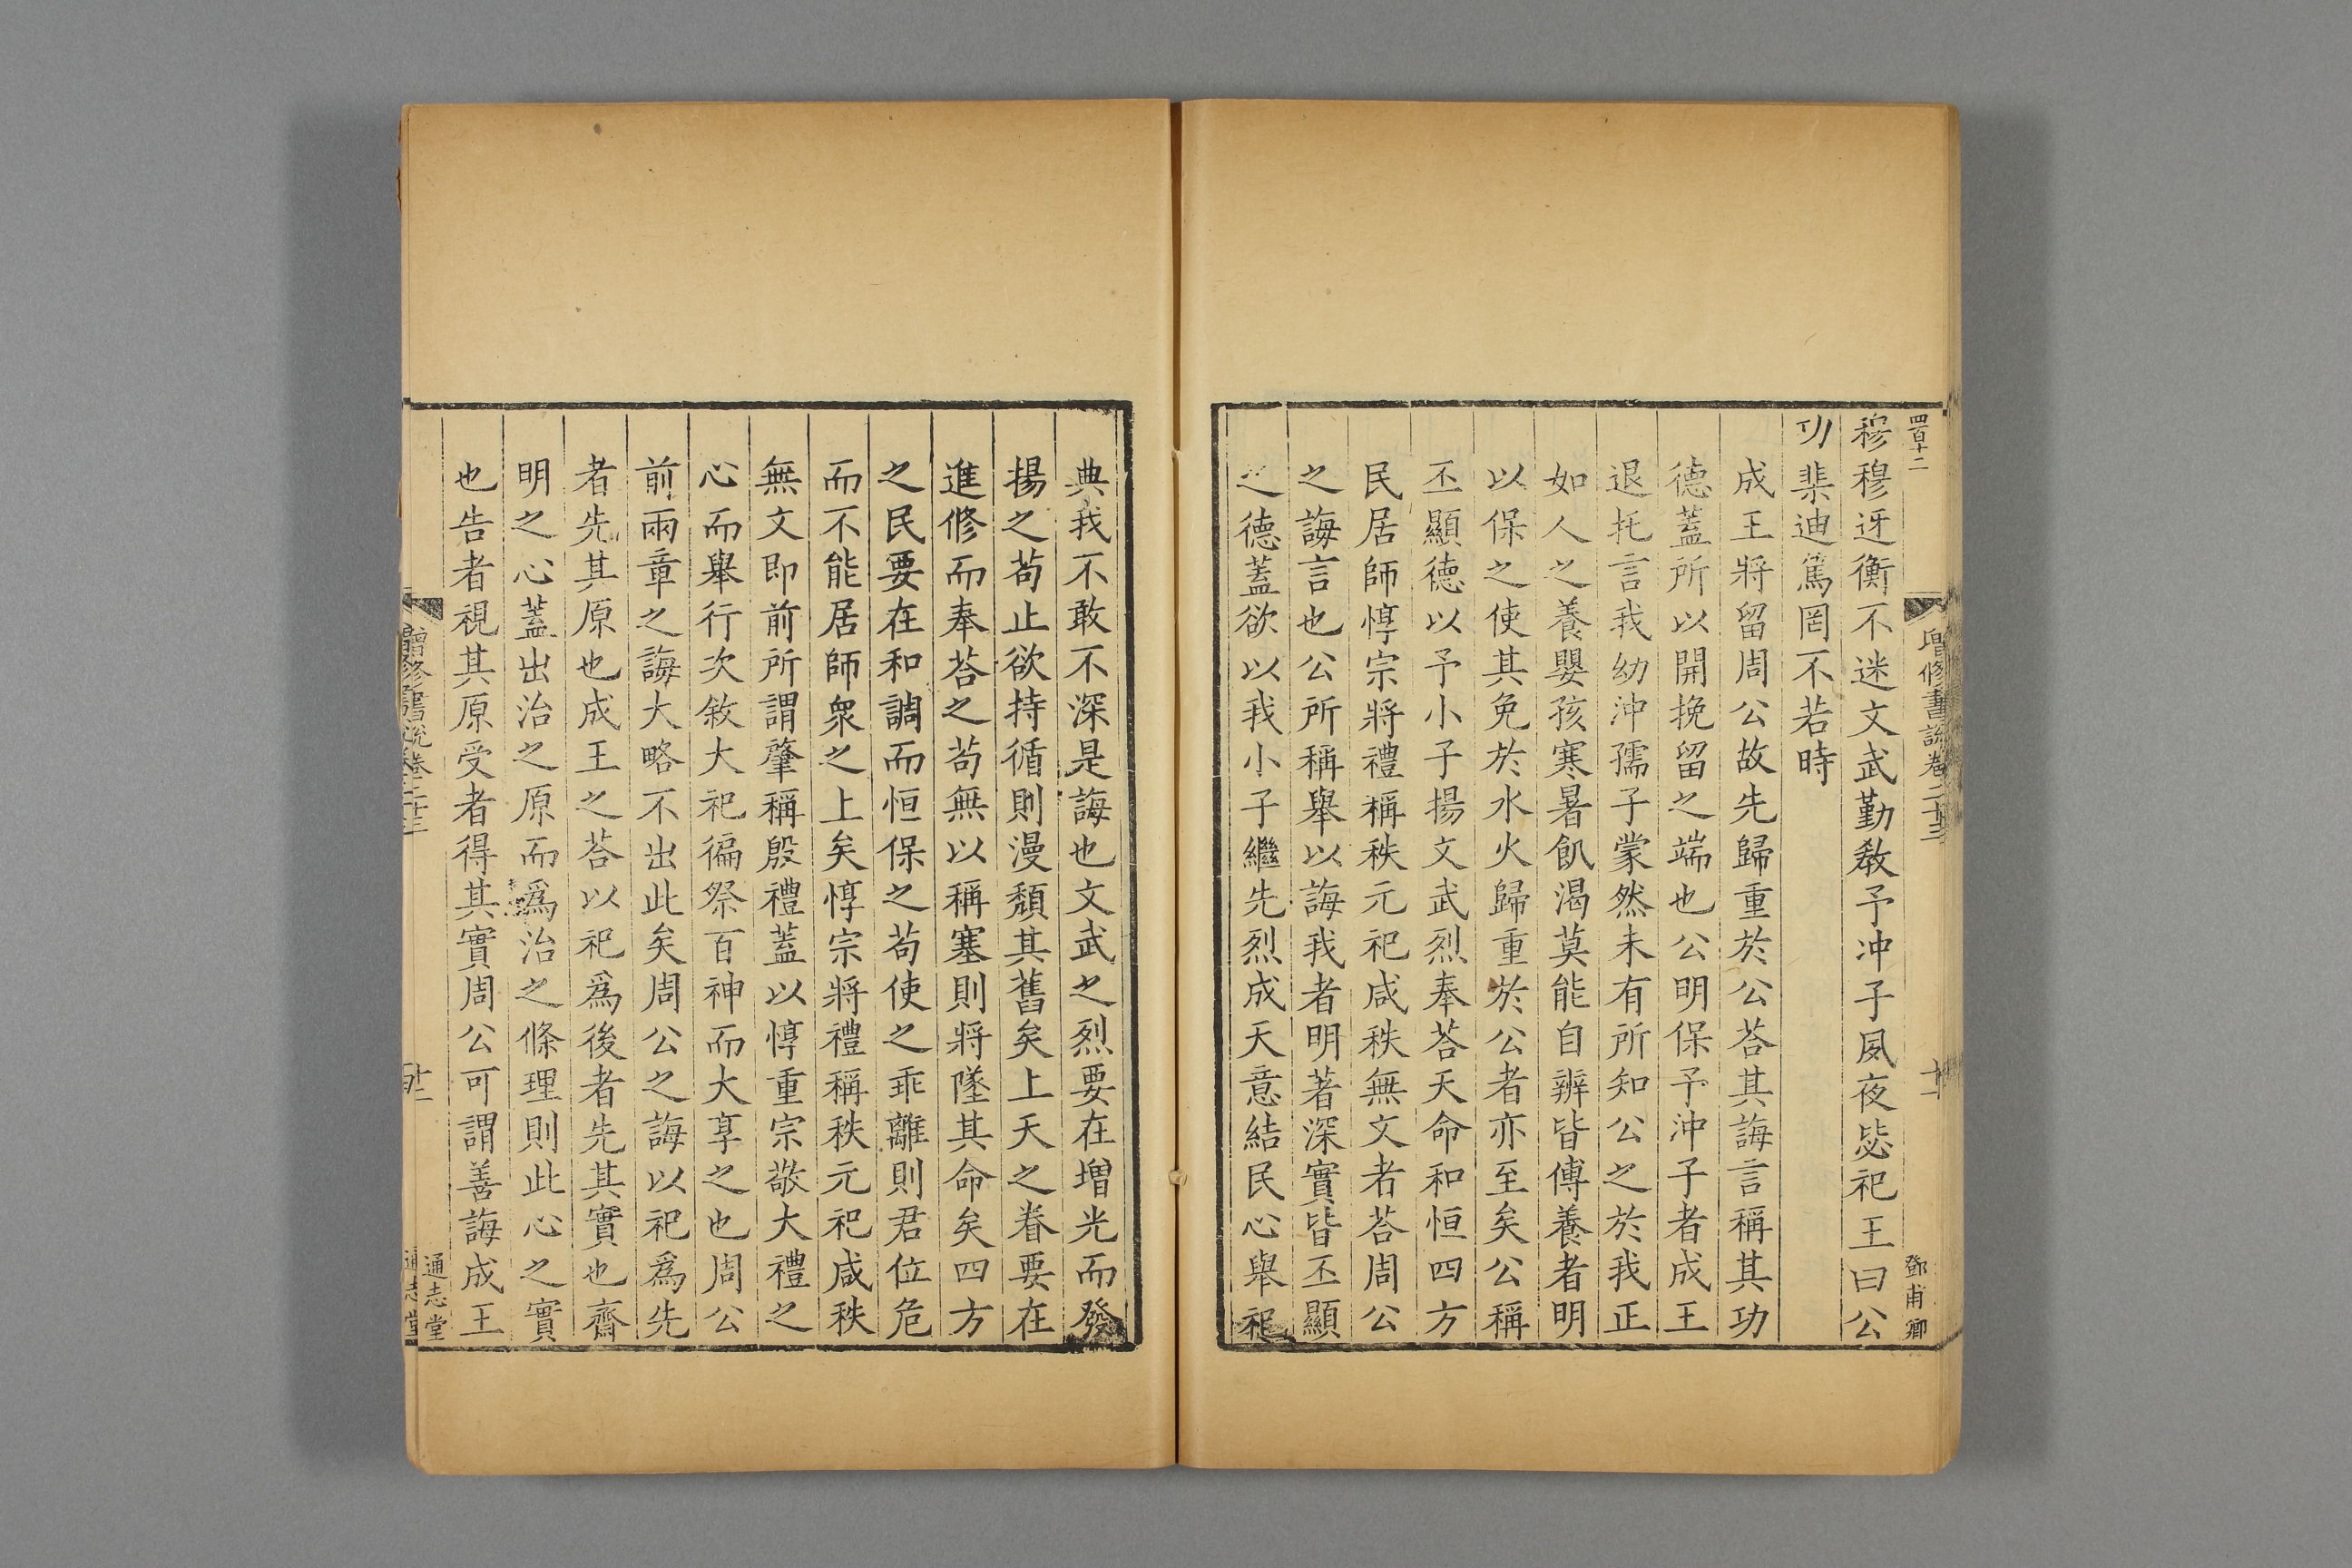 四百十二
增修書說卷二十三
十一
鄧甫卿
穆穆迓衡不迷文武勤敎予冲子夙夜毖祀王曰公
功棐迪篤罔不若時
成王將留周公故先歸重於公荅其誨言稱其功
德蓋所以開挽留之端也公明保予沖子者成王
退托言我幼沖孺子蒙然未有所知公之於我正
如人之養嬰孩寒暑飢渴莫能自辨皆傅養者明
以保之使其免於水火歸重於公者亦至矣公稱
丕顯德以予小子揚文武烈奉荅天命和恒四方
民居師惇宗將禮稱秩元祀咸秩無文者荅周公
之誨言也公所稱舉以誨我者明著深實皆丕顯
之德蓋欲以我小子繼先烈成天意結民心舉祀
典我不敢不深是誨也文武之烈要在增光而發
揚之苟止欲持循則漫頹其舊矣上天之眷要在
進修而奉荅之苟無以稱塞則將墜其命矣四方
之民要在和調而恒保之苟使之乖離則君位危
而不能居師衆之上矣惇宗將禮稱秩元祀咸秩
無文即前所謂肇稱殷禮蓋以惇重宗敬大禮之
心而舉行次敘大祀徧祭百神而大享之也周公
前兩章之誨大略不出此矣周公之誨以祀爲先
者先其原也成王之荅以祀爲後者先其實也齊
明之心蓋出治之原而爲治之條理則此心之實
也告者視其原受者得其實周公可謂善誨成王
增修書說卷二十三
十二
通志堂
通志堂